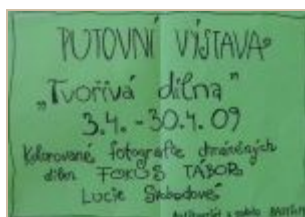 PUTOVNÍ VÝSTAVA
„Tvořivá dílna"
3.4. - 30.4. 09
Kolorované fotografie chráněných
dílen FOKUS TÁBOR
Lucie Svobodové